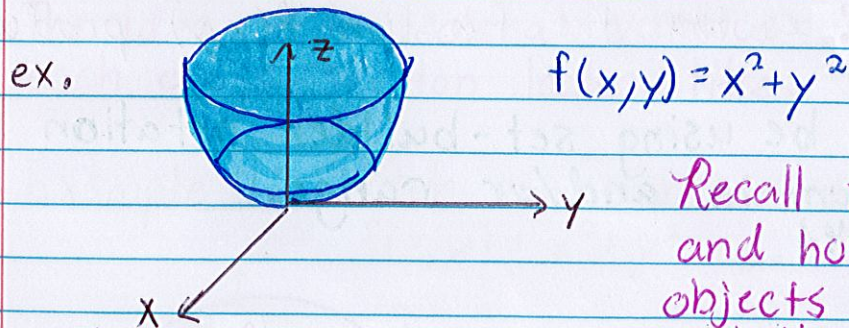 z
ex.
f(x,y) = x²+y²
y
Recall
and ho
objects
x